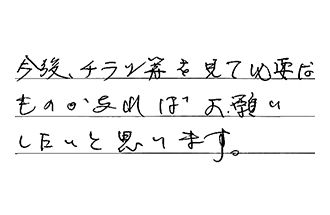 今後、チラシ等を見て必要な
ものがあれば お願い
したいと思います。